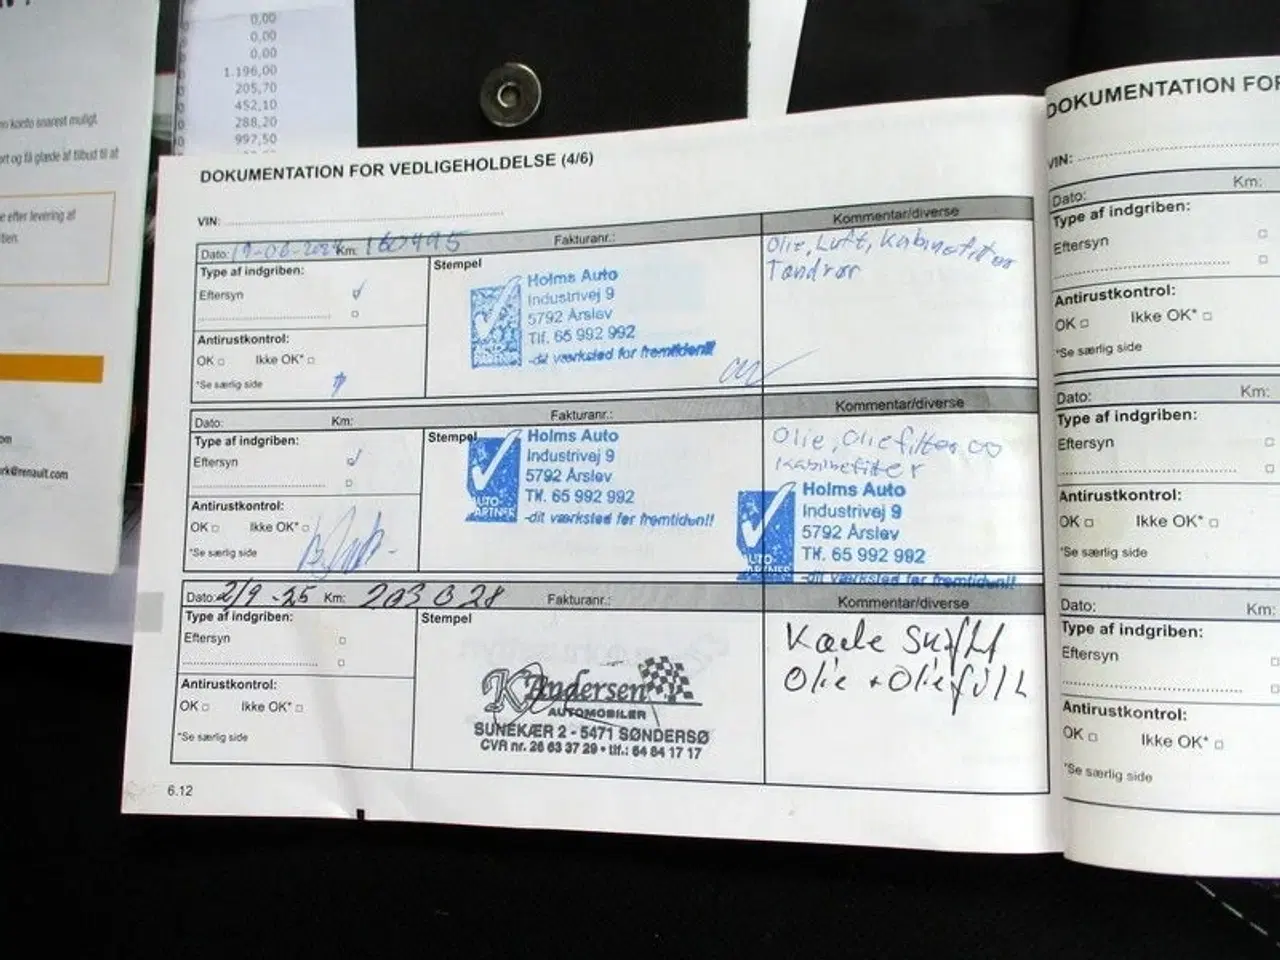 0,00
0,00
0,00
1.196,00
205,70
452,10
288,20
997,50
konto snarest muligt.
og få glæde af tilbud til at
efter levering af
rk@renault.com
DOKUMENTATION FOR VEDLIGEHOLDELSE (4/6)
VIN:
Dato: 19-06-202 Km: 160495 Fakturanr.: Kommentar/diverse
Type af indgriben:
Eftersyn
Antirustkontrol:
OK Ikke OK*
*Se særlig side
Stempel
Holms Auto
Industrivej 9
5792 Årslev
Tlf. 65 992 992
-dit værksted for fremtiden!!
AUTO-
PARTNER
Olie, Luft, Kabinefilter
Tændrør
Dato: Km: Fakturanr.: Kommentar/diverse
Type af indgriben:
Eftersyn
Antirustkontrol:
OK Ikke OK*
*Se særlig side
Stempel
Holms Auto
Industrivej 9
5792 Årslev
Tlf. 65 992 992
-dit værksted for fremtiden!!
AUTO-
PARTNER
Olie, Oliefilter og
Kabinefilter
Holms Auto
Industrivej 9
5792 Årslev
Tlf. 65 992 992
-dit værksted for fremtiden!!
AUTO-
PARTNER
Dato: 2/9-25 Km: 203028 Fakturanr.: Kommentar/diverse
Type af indgriben:
Eftersyn
Antirustkontrol:
OK Ikke OK*
*Se særlig side
Stempel
K Andersen
AUTOMOBILER
SUNEKÆR 2 - 5471 SØNDERSØ
CVR nr. 26 63 37 29 • tlf.: 64 84 17 17
Olie + Oliefilt
6.12
DOKUMENTATION FOR
VIN:
Dato: Km:
Type af indgriben:
Eftersyn
Antirustkontrol:
OK Ikke OK*
*Se særlig side
Dato: Km:
Type af indgriben:
Eftersyn
Antirustkontrol:
OK Ikke OK*
*Se særlig side
Dato: Km:
Type af indgriben:
Eftersyn
Antirustkontrol:
OK Ikke OK*
*Se særlig side